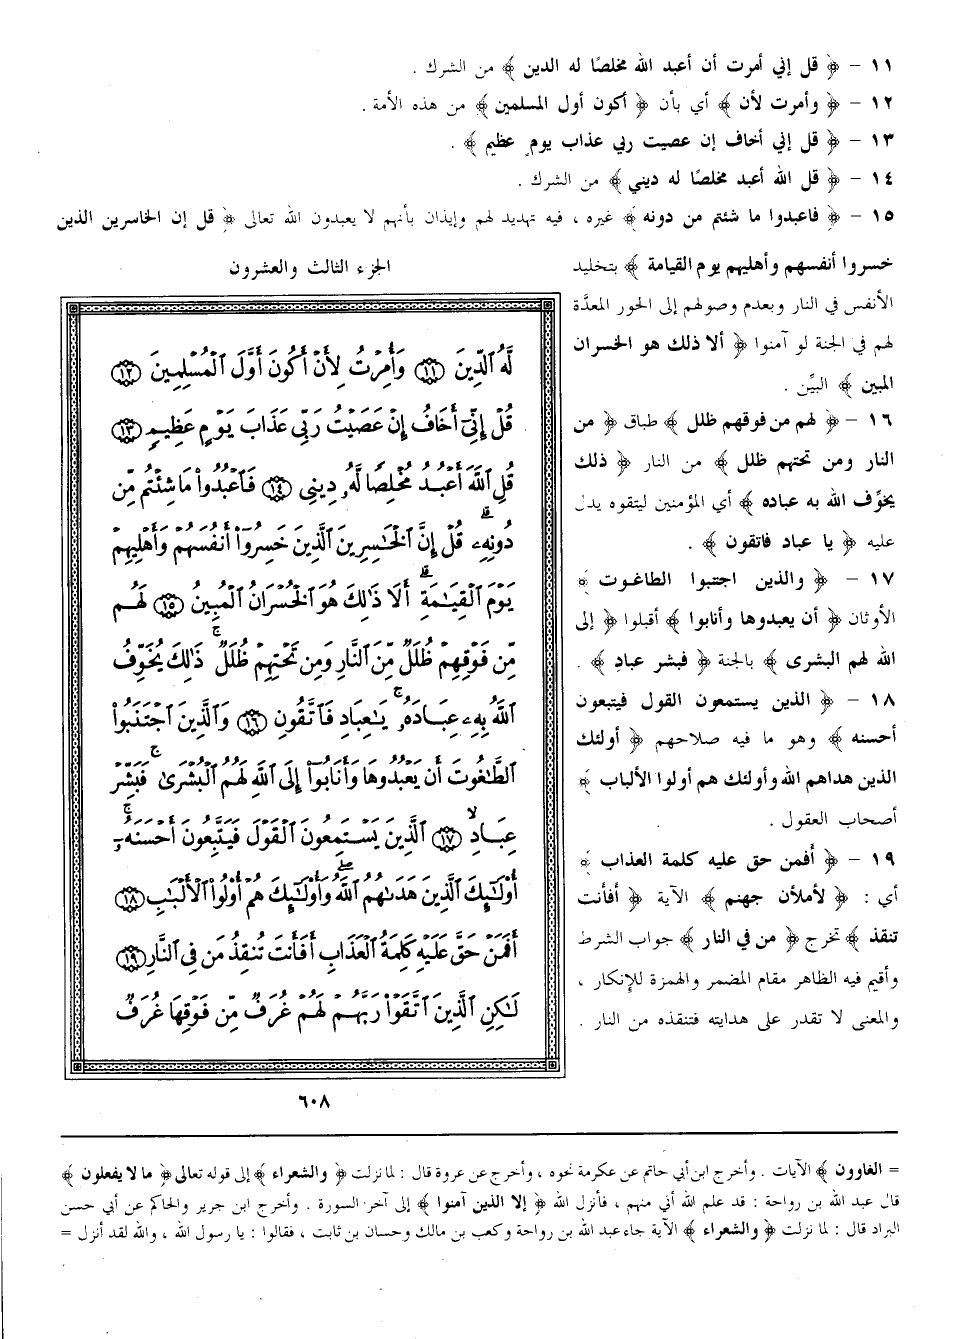 ١١ – ﴿ قل إني أمرت أن أعبد الله مخلصًا له الدين ﴾ من الشرك .
١٢ – ﴿ وأمرت لأن ﴾ أي بأن ﴿ أكون أول المسلمين ﴾ من هذه الأمة .
١٣ – ﴿ قل إني أخاف إن عصيت ربي عذاب يوم عظيم ﴾ .
١٤ – ﴿ قل الله أعبد مخلصًا له ديني ﴾ من الشرك .
١٥ – ﴿ فاعبدوا ما شئتم من دونه ﴾ غيره ، فيه تهديد لهم وإيذان بأنهم لا يعبدون الله تعالى ﴿ قل إن الخاسرين الذين
خسروا أنفسهم وأهليهم يوم القيامة ﴾ بتخليد
الأنفس في النار وبعدم وصولهم إلى الحور المعدَّة
لهم في الجنة لو آمنوا ﴿ ألا ذلك هو الخسران
المبين ﴾ البيِّن .
١٦ – ﴿ لهم من فوقهم ظلل ﴾ طباق ﴿ من
النار ومن تحتهم ظلل ﴾ من النار ﴿ ذلك
يخوِّف الله به عباده ﴾ أي المؤمنين ليتقوه يدل
عليه ﴿ يا عباد فاتقون ﴾ .
١٧ – ﴿ والذين اجتنبوا الطاغوت ﴾
الأوثان ﴿ أن يعبدوها وأنابوا ﴾ أقبلوا ﴿ إلى
الله لهم البشرى ﴾ بالجنة ﴿ فبشر عباد ﴾ .
١٨ – ﴿ الذين يستمعون القول فيتبعون
أحسنه ﴾ وهو ما فيه صلاحهم ﴿ أولئك
الذين هداهم الله وأولئك هم أولوا الألباب ﴾
أصحاب العقول .
١٩ – ﴿ أفمن حق عليه كلمة العذاب ﴾
أي : ﴿ لأملأن جهنم ﴾ الآية ﴿ أفأنت
تنقذ ﴾ تخرج ﴿ من في النار ﴾ جواب الشرط
وأقيم فيه الظاهر مقام المضمر والهمزة للإنكار ،
والمعنى لا تقدر على هدايته فتنقذه من النار .
الجزء الثالث والعشرون
لَّهُ ٱلدِّينَ ١١ وَأُمِرْتُ لِأَنْ أَكُونَ أَوَّلَ ٱلْمُسْلِمِينَ ١٢
قُلْ إِنِّىٓ أَخَافُ إِنْ عَصَيْتُ رَبِّى عَذَابَ يَوْمٍ عَظِيمٍ ١٣
قُلِ ٱللَّهَ أَعْبُدُ مُخْلِصًا لَّهُۥ دِينِى ١٤ فَٱعْبُدُوا۟ مَا شِئْتُم مِّن
دُونِهِۦ ۗ قُلْ إِنَّ ٱلْخَـٰسِرِينَ ٱلَّذِينَ خَسِرُوٓا۟ أَنفُسَهُمْ وَأَهْلِيهِمْ
يَوْمَ ٱلْقِيَـٰمَةِ ۗ أَلَا ذَٰلِكَ هُوَ ٱلْخُسْرَانُ ٱلْمُبِينُ ١٥ لَهُم
مِّن فَوْقِهِمْ ظُلَلٌ مِّنَ ٱلنَّارِ وَمِن تَحْتِهِمْ ظُلَلٌ ۚ ذَٰلِكَ يُخَوِّفُ
ٱللَّهُ بِهِۦ عِبَادَهُۥ ۚ يَـٰعِبَادِ فَٱتَّقُونِ ١٦ وَٱلَّذِينَ ٱجْتَنَبُوا۟
ٱلطَّـٰغُوتَ أَن يَعْبُدُوهَا وَأَنَابُوٓا۟ إِلَى ٱللَّهِ لَهُمُ ٱلْبُشْرَىٰ ۚ فَبَشِّرْ
عِبَادِ ۙ ١٧ ٱلَّذِينَ يَسْتَمِعُونَ ٱلْقَوْلَ فَيَتَّبِعُونَ أَحْسَنَهُۥٓ ۚ
أُو۟لَـٰٓئِكَ ٱلَّذِينَ هَدَىٰهُمُ ٱللَّهُ ۖ وَأُو۟لَـٰٓئِكَ هُمْ أُو۟لُوا۟ ٱلْأَلْبَـٰبِ ١٨
أَفَمَنْ حَقَّ عَلَيْهِ كَلِمَةُ ٱلْعَذَابِ أَفَأَنتَ تُنقِذُ مَن فِى ٱلنَّارِ ١٩
لَـٰكِنِ ٱلَّذِينَ ٱتَّقَوْا۟ رَبَّهُمْ لَهُمْ غُرَفٌ مِّن فَوْقِهَا غُرَفٌ
٦٠٨
= الغاوون ﴾ الآيات . وأخرج ابن أبي حاتم عن عكرمة نحوه ، وأخرج عن عروة قال : لما نزلت ﴿ والشعراء ﴾ إلى قوله تعالى ﴿ ما لا يفعلون ﴾
قال عبد الله بن رواحة : قد علم الله أني منهم ، فأنزل الله ﴿ إلا الذين آمنوا ﴾ إلى آخر السورة . وأخرج ابن جرير والحاكم عن أبي حسن
البراد قال : لما نزلت ﴿ والشعراء ﴾ الآية جاء عبد الله بن رواحة وكعب بن مالك وحسان بن ثابت ، فقالوا : يا رسول الله ، والله لقد أنزل =